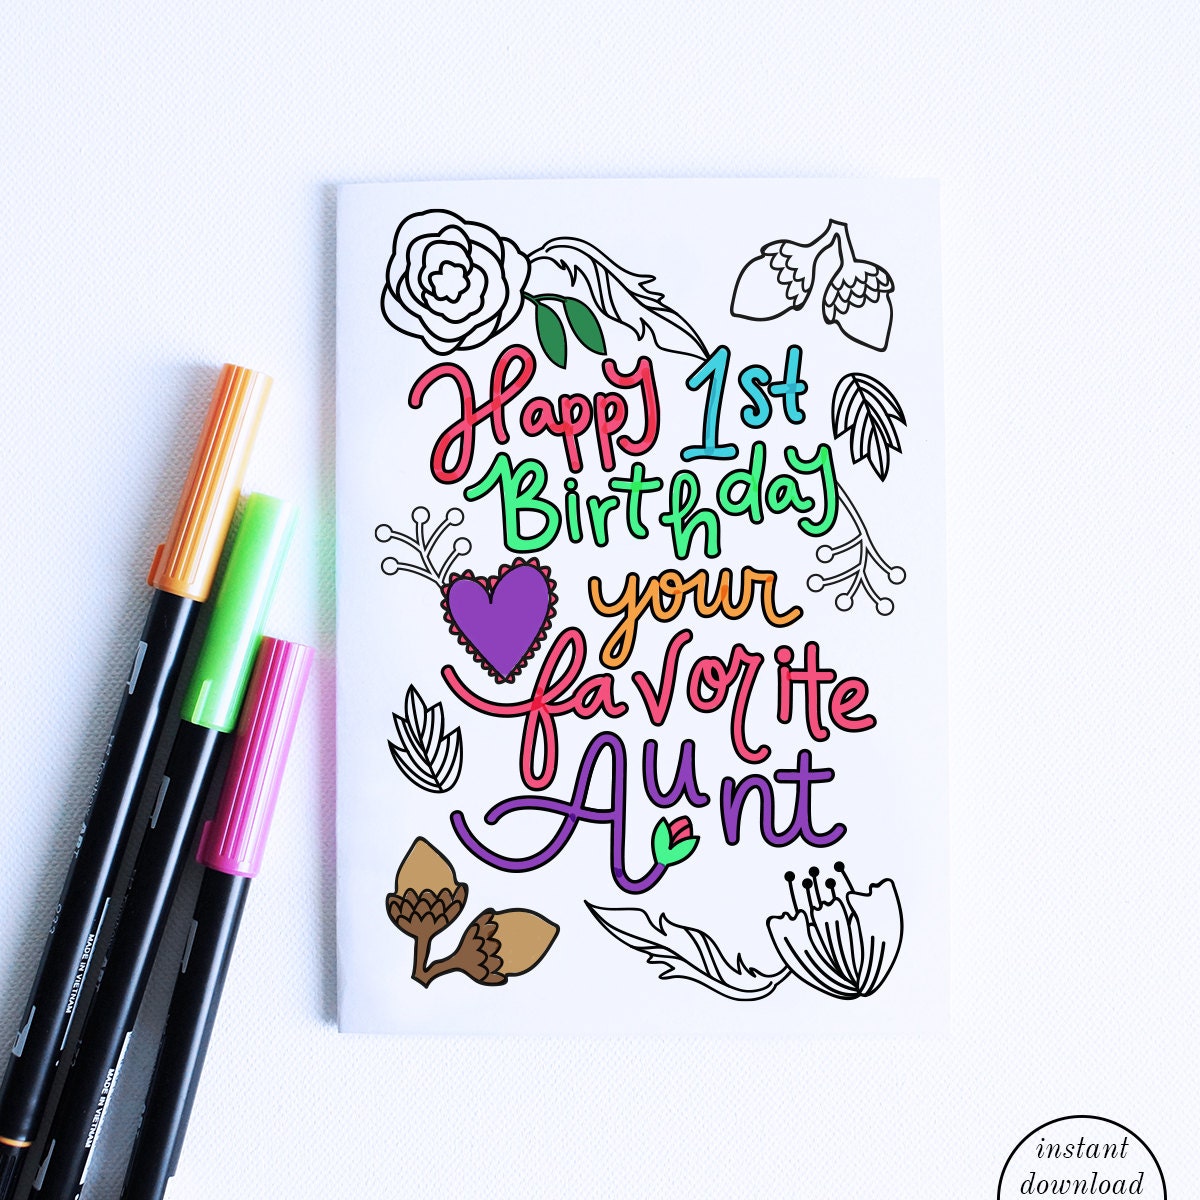 Happy 1st
Birthday
your
favorite
Aunt
MADE IN VIETNAM
MADE IN VIETNAM
instant
download